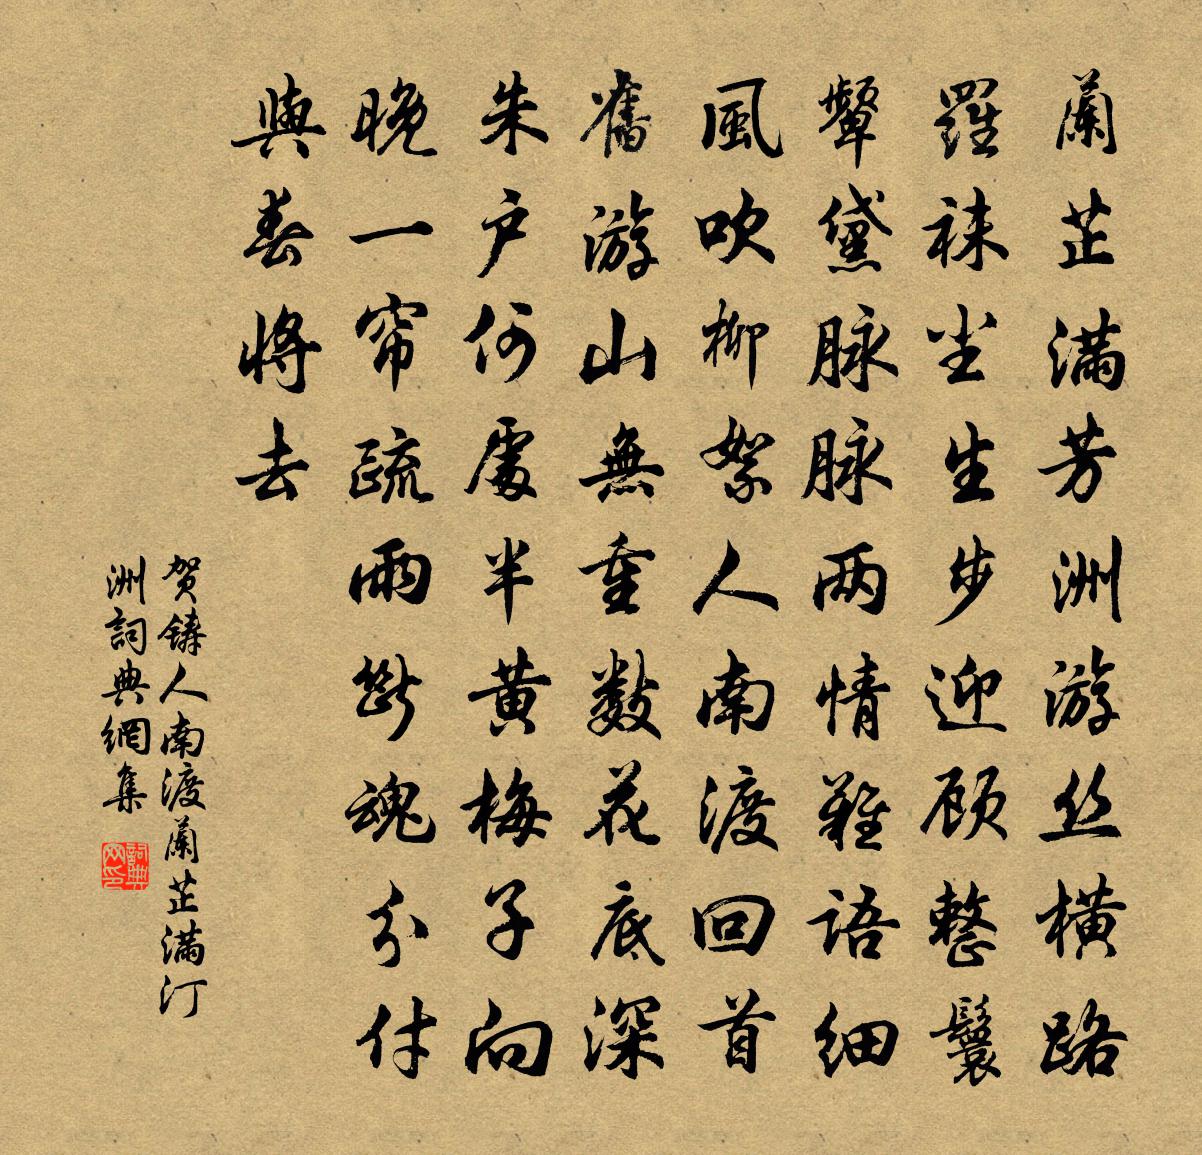 蘭芷滿芳洲游丝橫路
羅袜尘生步迎顾整鬟
顰黛脉脉两情難語细
風吹柳絮人南渡回首
舊游山無重數花底深
朱户何處半黄梅子向
晚一帘疏雨斷魂分付
與春將去
贺鑄人南渡蘭芷滿汀
洲詞典網集
詞典网印